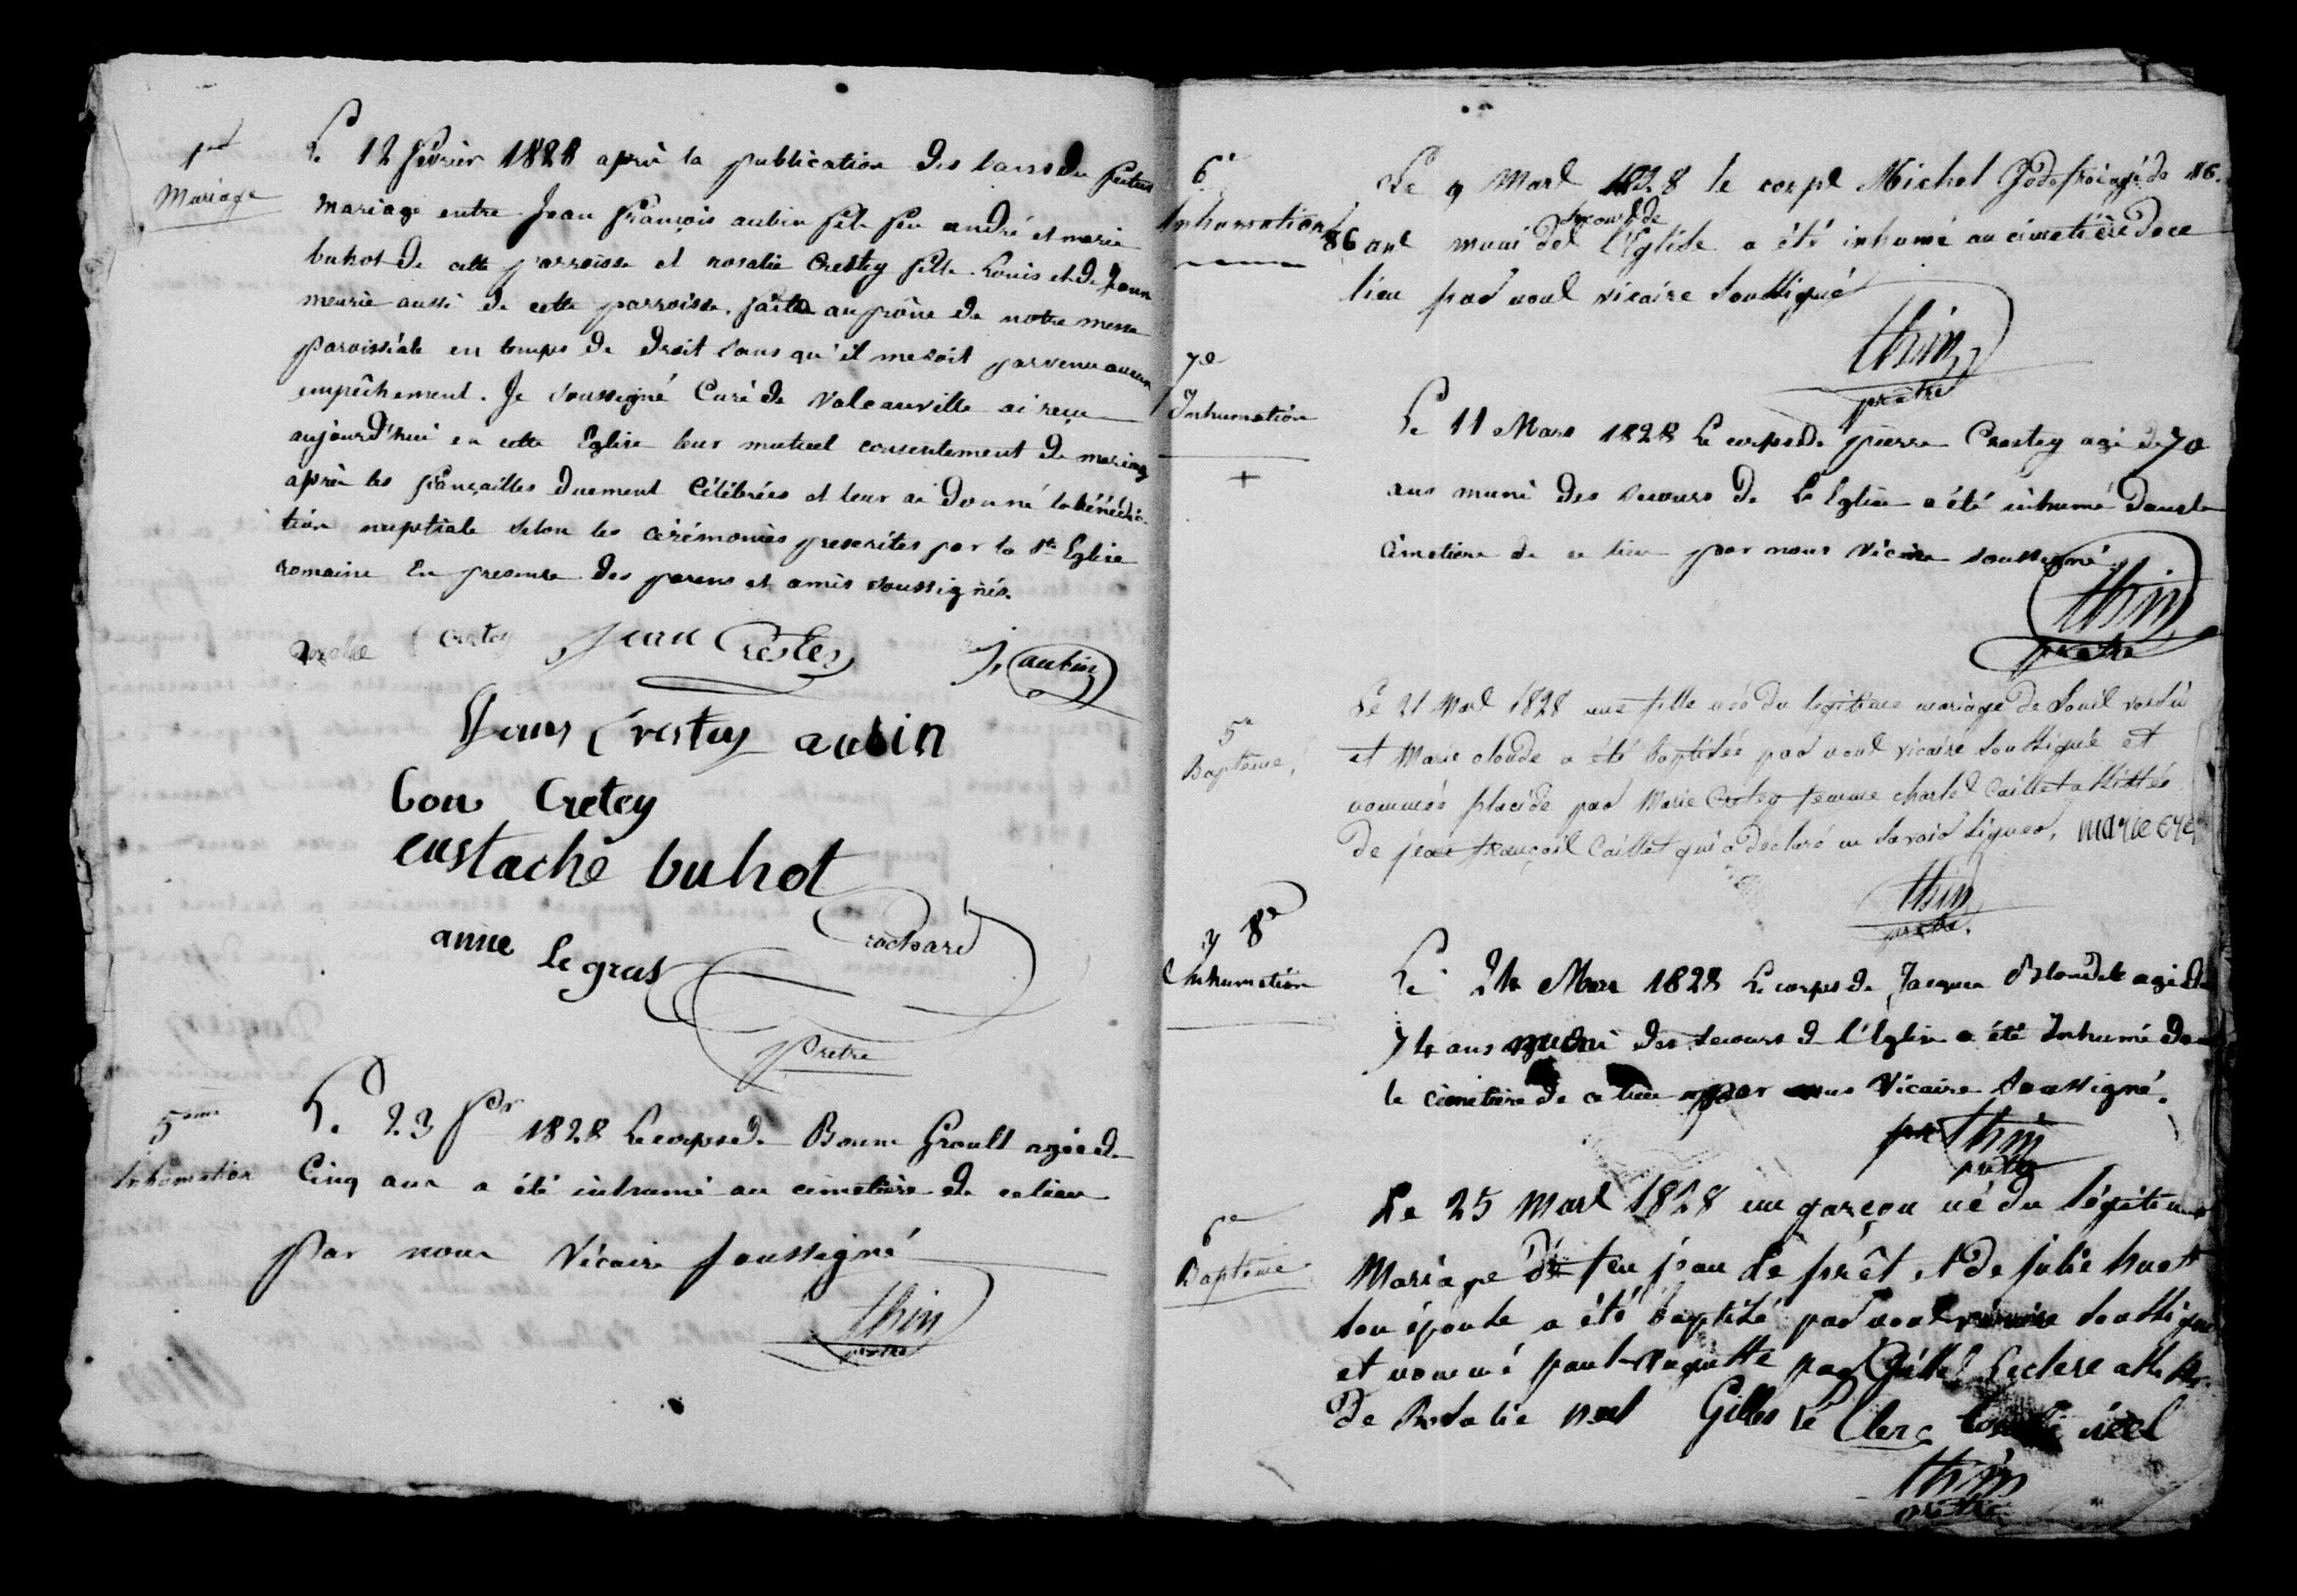 1er
Mariage
Le 12 février 1828 après la publication des bans du futur
mariage entre Jean françois aubin fils feu andré et marie
buhot de cette parroisse et rosalie Crestey fille Louis et de jeanne
meurie aussi de cette parroisse, faite au prône de notre messe
paroissiale en temps de droit sans qu'il me soit parvenu aucun
empêchement. Je soussigné Curé de Valcanville ai reçu
aujourd'hui en cette Eglise leur mutuel consentement de mariage
après les fiançailles duement célébrées et leur ai donné la bénédic-
tion nuptiale selon les cérémonies prescrites par la Ste Eglise
romaine En presence des parens et amis soussignés.
Crestey jean Crestey J, aubin
Crestey aubin
bon Cretey
eustache buhot
anne le gras
Pretre
5eme
Inhumation
Le 23 fer 1828 Le corps de Bonne Groult agée de
Cinq ans a été inhumé au cimetière de ce lieu
par nous Vicaire soussigné
thin
pretre
6e
Inhumation
Le 9 Mars 1828 le corps Michel Godefroi agé de 86
secours de
86 ans muni des l'Eglise a été inhumé au cimetière de ce
lieu par nous vicaire soussigné
thin
pretre
7e
Inhumation
+
Le 11 Mars 1828 Le corps de pierre Crestey agé de 70
ans muni des secours de L'Eglise a été inhumé dans le
Cimetiere de ce lieu par nous Vicaire soussigné.
thin
pretre
5e
Baptême,
Le 21 Mars 1828 une fille née du légitime mariage de Louis
et Marie a été baptisée par nous vicaire soussigné et
nommée placide par Marie Cretey femme charles Caillet assistée
de jean françois Caillet qui a déclaré ne savoir signer. marie cre
thin
pretre.
8e
Inhumation
Le 24 Mars 1828 Le corps de Jacques Blondel agé de
74 ans muni des secours de l'Eglise a été Inhumé dans
le cimetière de ce lieu par nous Vicaire soussigné.
thin
pretre
6e
Baptême
Le 25 Mars 1828 un garçon né du légitime
Mariage de feu jean Le prêt et de julie huet
son épouse a été baptisé par nous vicaire soussigné
et nommé paul auguste par Gilles Leclerc assisté
de Rosalie noel Gilles le Clerc noel
thin
pretre